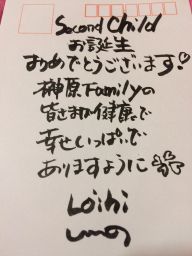 Second Child
お誕生
おめでとうございます!
榊原Familyの
皆さまが健康で
幸せいっぱいで
ありますように
Loihi